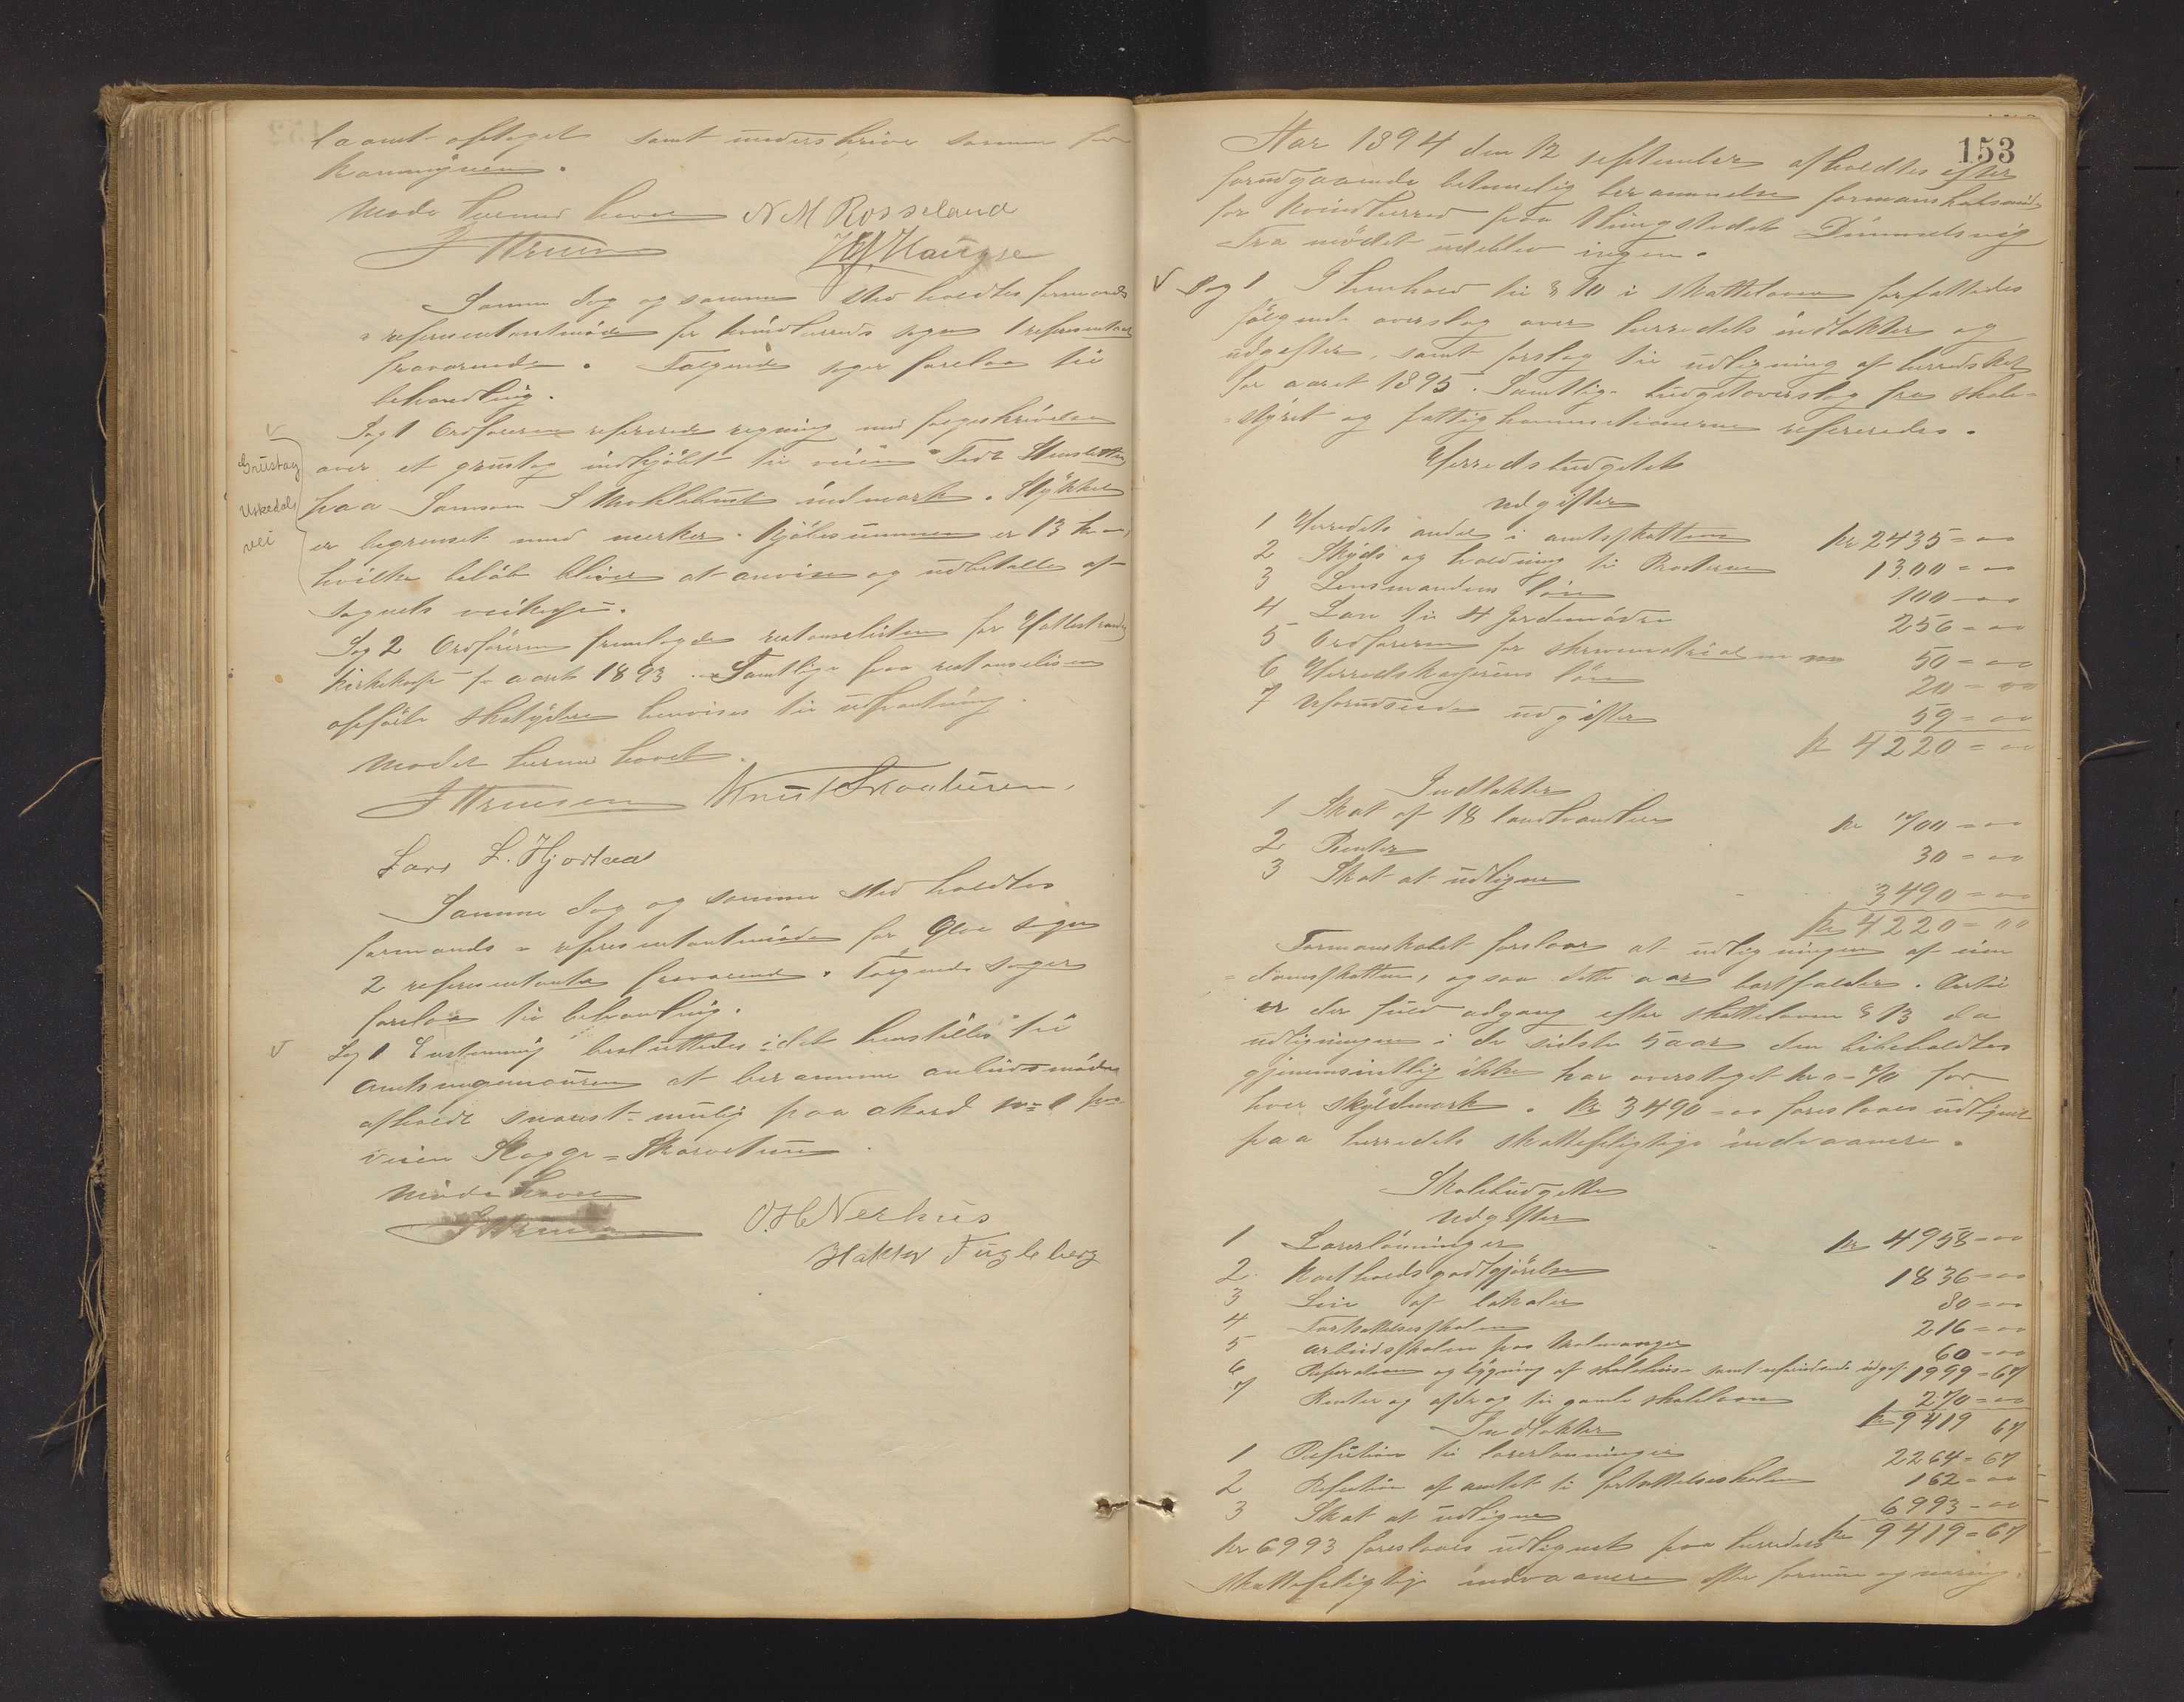 laanet optaget samt underskrive samme for
kommunen.
Møde hermed hævet N M Rosseland
J Hruen H J Haugse
Samme dag og samme sted holdtes formands
= repræsentantmøde for kvindherreds sogn 1 repræsentant
fraværende. Følgende sager forelaa til
behandling.
Sag 1 Ordføreren refererede regning med
Grustag over et grustag indkjøbt til veien
Uskedals paa Samson S indmark. Stykket
vei er begrenset med merker. Kjøbesummen er 13 kr.
hvilke beløb bliver at anvise og udbetalle af
sognets veikasse.
Sag 2 Ordføreren fremlagde restanselisten for
kirkekasse for aaret 1893. Samtlige paa restanselisen
opførte skatydere henvises til udpantning.
Mødet hermed hævet.
Lars L. Hjortaas
Samme dag og samme sted holdtes
formands = repræsentantmøde for Øvre sogn
2 repræsentanter fraværende. Følgende sager
forelaa til behandling.
Sag 1 Enstemmig besluttedes: det henstilles til
Amtsingeniøren at beramme anbudsmøde
afholdt snarest mulig paa akord No 1 paa
veien
Møde hævet
O. H Nerhus
Haktor Fugleberg
153
Aar 1894 den 12 september afholdtes efter
forudgaaende betimelig berammelse formanskabsmøde
for Kvindherred paa thingstedet Dimmelsvig
Fra mødet udeblev ingen.
Sag 1 I henhold til § 70 i skatteloven forfattedes
følgende overslag over herredets indtækter og
udgifter, samt forslag til udligning af herredskat
for aaret 1895. Samtlige budgetoverslag fra skole=
=styret og fattigkommissionerne refereredes.
Herredsbudgetet
Udgifter
1 Herredets andel i amtsskatten kr 2435=00
2 Skyds og holdning til Prosterne 1300=00
3 Lensmandens løn 100=00
4 Løn til 4 Jordemødre 256=00
5 Ordføreren for skrivematrialer 50=00
6 Herredskasserens løn 20=00
7 Uforudseede udgifter 59=00
kr 4220=00
Indtækter
1 Skat af 18 landhandlere kr 700=00
2 Renter 30=00
3 Skat at udligne 3490=00
kr 4220=00
Formanskabet foreslaar at udligningen af eien
=domsskatten, ogsaa dette aar bortfalder. Dertil
er der fuld adgang efter skatteloven § 13 da
udligningen i de sidste 5 aar den bibeholdtes
gjennemsnitlig ikke har oversteget kr 0=70 for
hver skyldmark. Kr 3490=00 foreslaaes udlignet
paa herredets skattepligtige indvaanere.
Skolebudgettet
Udgifter
1 Lærerlønninger kr 4958=00
2 Kostholdsgodtgjørelse 1836=00
3 Leie af lokaler 80=00
4 Fortsættelsesskolen 216=00
5 Arbeidsskolen paa Malmanger 60=00
6 Reparation og bygning af skolehuse samt uforudseede udgif. 1999=67
7 Renter og afdrag til gamle skolelaan 270=00
kr 9419 67
Indtækter
1 Refution til lærerlønninger 2264=67
2 Refution af amtet til fortsættelsesskolen 162=00
3 Skat at udligne 6993=00
kr 9419=67
kr 6993 foreslaaes udlignet paa herredets
skattepligtige indvaanere efter formue og næring.